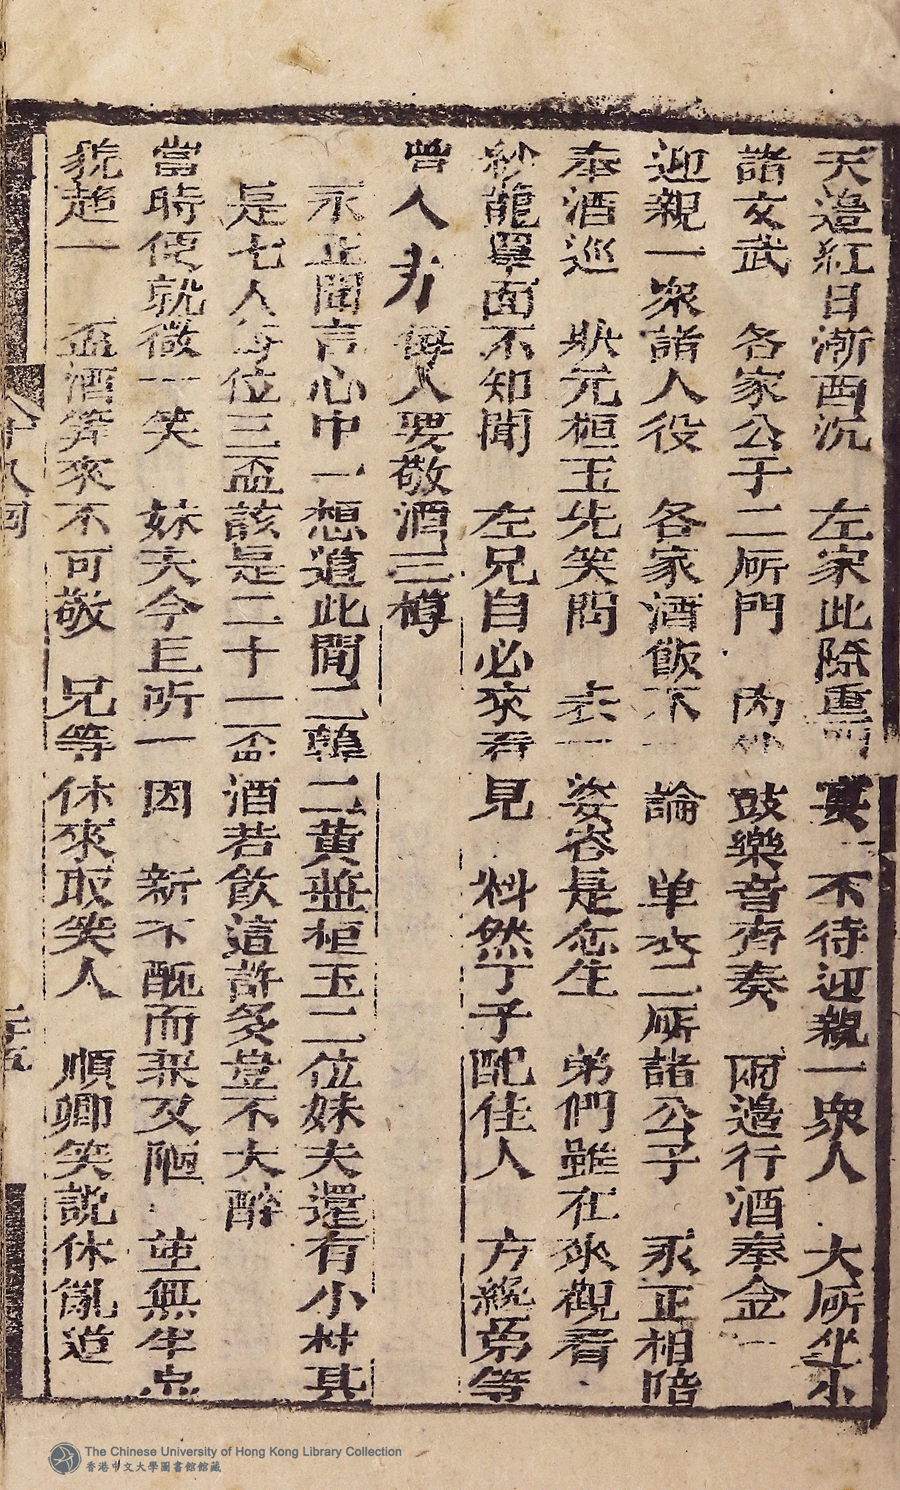 天邉紅日漸西沉　左家此際重開宴　不待迎親一衆人　大所坐小
諸文武　各家公子二所門　内外鼓樂音齊奏　兩邉行酒奉金
迎親一衆諸人役　各家酒飯不一論　单衣二所諸公子　永正相陪
奉酒巡　狀元桓玉先笑問　表一姿容是怎生　弟們雖在來觀看
紗龍單面不知聞　左兄自必來看見　料然丁予配佳人　方纔弟等
曾人　每人要敬酒三樽
永正聞言心中一想道此間二韓二黄並桓玉二位妹夫還有小材其
是七人每位三盃該是二十一盃酒若飲這許多豈不大醉
當時便就微一笑　妹夫今巨所一因　新不醜而来又陋　並無半点
貌趂一　盃酒筭來不可敬　兄等休來取笑人　順卿笑說休亂道
The Chinese University of Hong Kong Library Collection
香港中文大學圖書館館藏